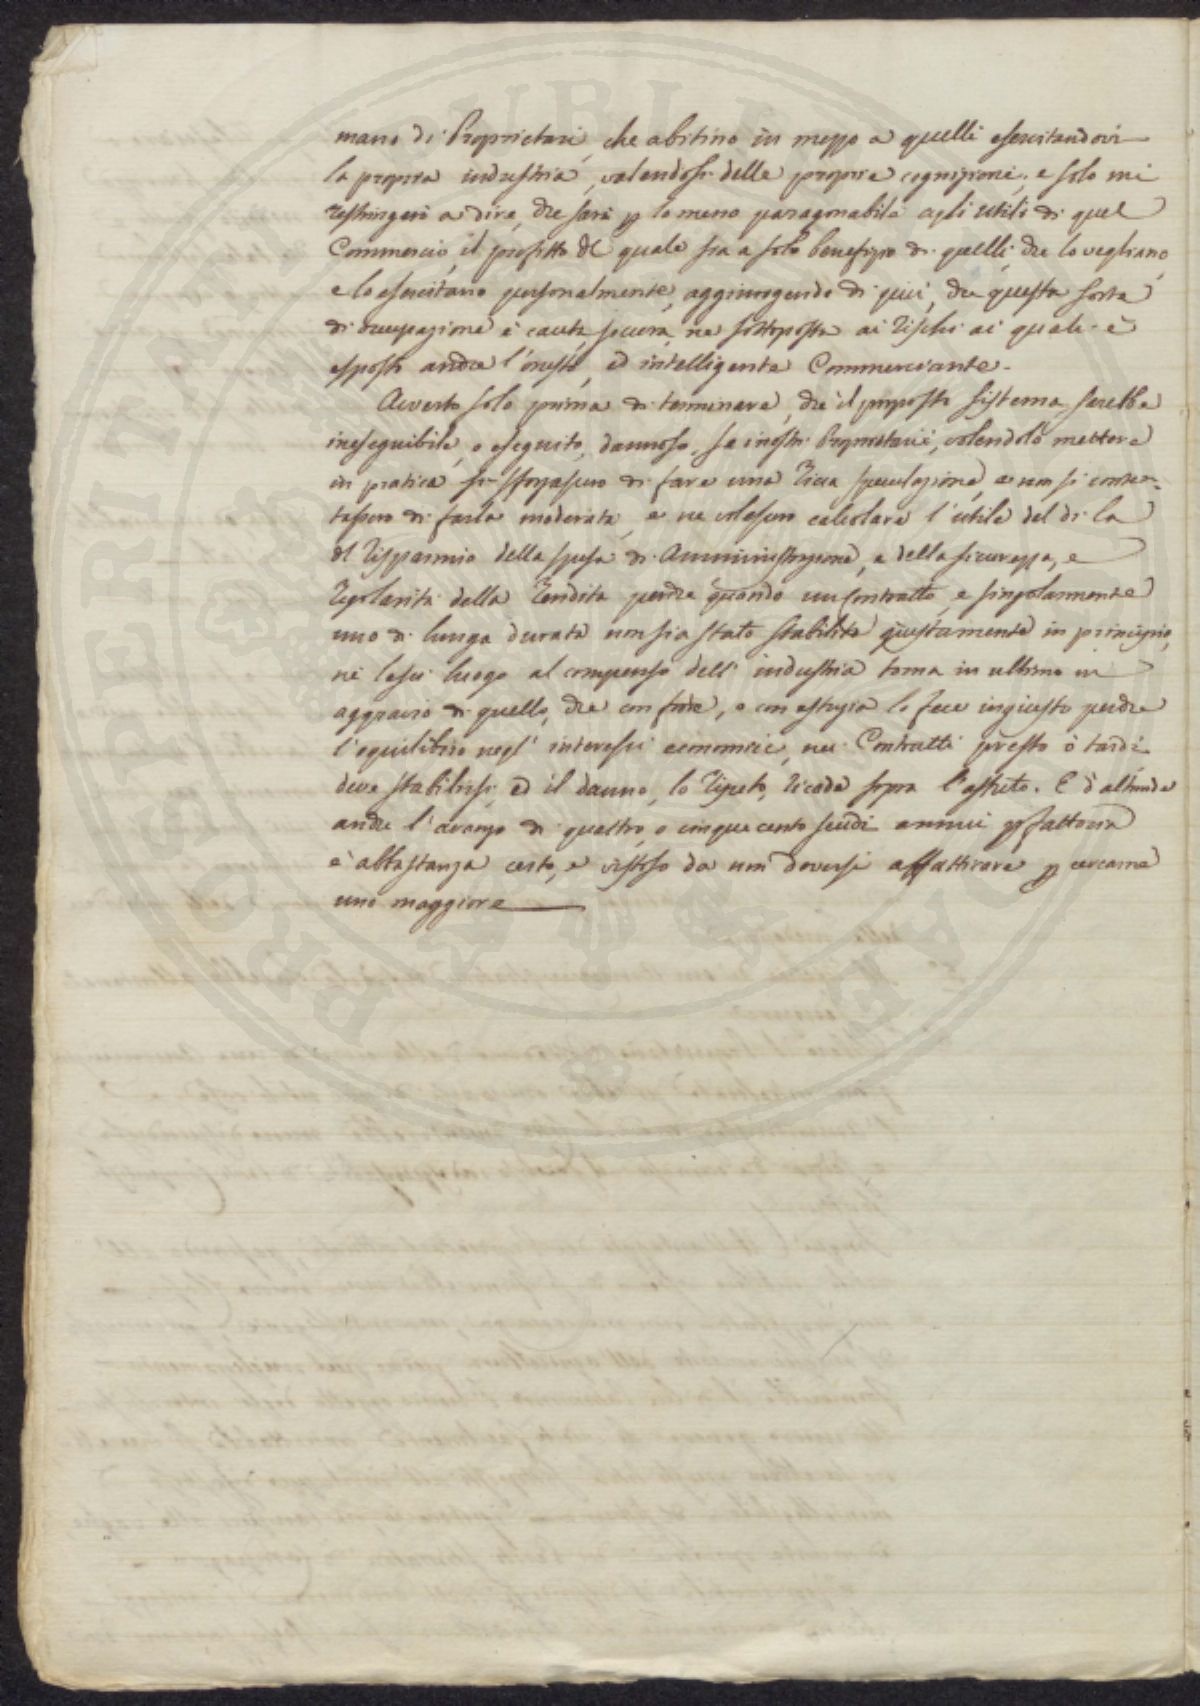 mano di Proprietari, che abitino in mezzo a quelli esercitandovi
la propria industria, valendosi delle proprie cognizioni, e solo mi
restringerò a dire, che sarà p lo meno paragonabile agli utili di quel
Commercio, il profitto del quale sia a solo benefizio di quelli, che lo vegliano,
e lo esercitano personalmente, aggiungendo di più, che questa sorte
di occupazione è cauta, sicura, ne sottoposta ai rischi ai quali è
esposto anche l'onesto, ed intelligente Commerciante.
Avverto solo prima di terminare, che il proposto sistema sarebbe
ineseguibile, o eseguito, dannoso, se i nostri Proprietarii, volendolo mettere
in pratica si sforzassero di fare una ricca speculazione, e non si conten-
tassero di farla moderata, e ne volessero calcolare l'utile del di la
del risparmio della spesa di Amministrazione, e della sicurezza, e
regolarità della rendita perché quando un Contratto, e singolarmente
uno di lunga durata non sia stato stabilito giustamente in principio,
nè lasci luogo al compenso dell'industria torna in ultimo in
aggravio di quello, che con frode, o con astuzia lo fece ingiusto perché
l'equilibrio negl'interessi economici, nei Contratti presto o tardi
deve stabilirsi, ed il danno, lo ripeto, ricade sopra l'astuto. E d'altronde
anche l'avanzo di quattro, o cinquecento scudi annui p fattoria
è abbastanza certo, e vistoso da non doversi affatticare p cercarne
uno maggiore